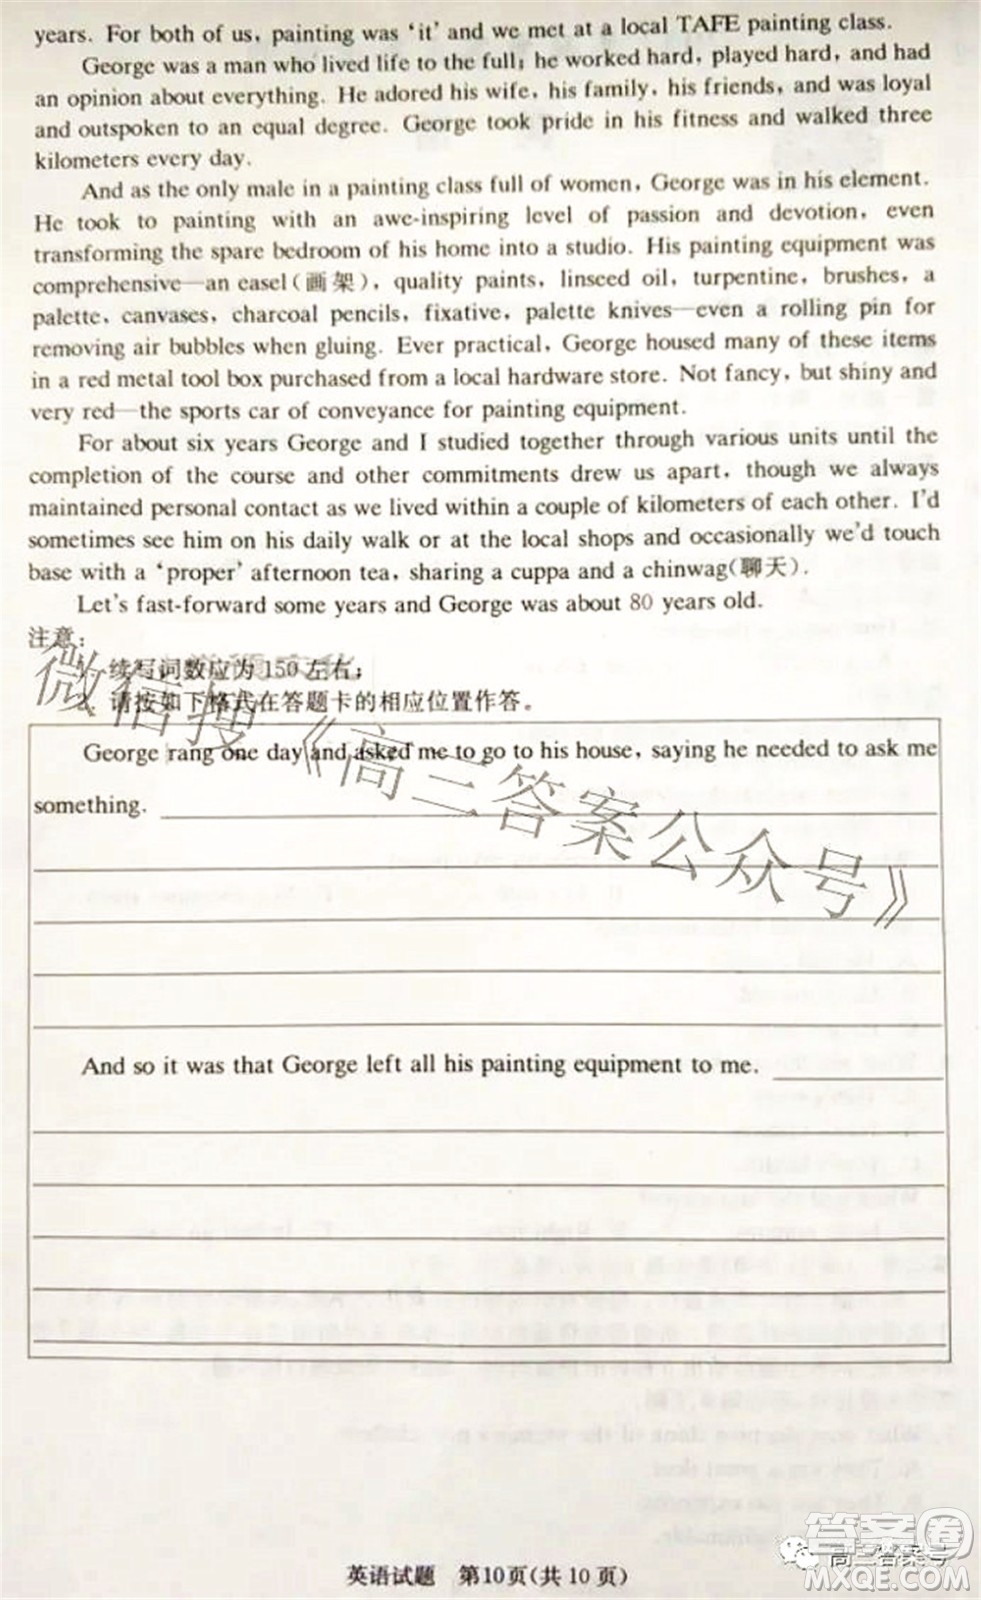 years. For both of us, painting was ‘it’ and we met at a local TAFE painting class.
George was a man who lived life to the full; he worked hard, played hard, and had
an opinion about everything. He adored his wife, his family, his friends, and was loyal
and outspoken to an equal degree. George took pride in his fitness and walked three
kilometers every day.
And as the only male in a painting class full of women, George was in his element.
He took to painting with an awe-inspiring level of passion and devotion, even
transforming the spare bedroom of his home into a studio. His painting equipment was
comprehensive—an easel(画架), quality paints, linseed oil, turpentine, brushes, a
palette, canvases, charcoal pencils, fixative, palette knives—even a rolling pin for
removing air bubbles when gluing. Ever practical, George housed many of these items
in a red metal tool box purchased from a local hardware store. Not fancy, but shiny and
very red—the sports car of conveyance for painting equipment.
For about six years George and I studied together through various units until the
completion of the course and other commitments drew us apart, though we always
maintained personal contact as we lived within a couple of kilometers of each other. I'd
sometimes see him on his daily walk or at the local shops and occasionally we'd touch
base with a ‘proper’ afternoon tea, sharing a cuppa and a chinwag(聊天).
Let's fast-forward some years and George was about 80 years old.
注意:
续写词数应为150左右;
请按如下格式在答题卡的相应位置作答。
George rang one day and asked me to go to his house, saying he needed to ask me
something.
And so it was that George left all his painting equipment to me.
微信搜《高三答案公众号》
英语试题 第10页(共10页)
高三答案号
答案圈
MXQE.COM